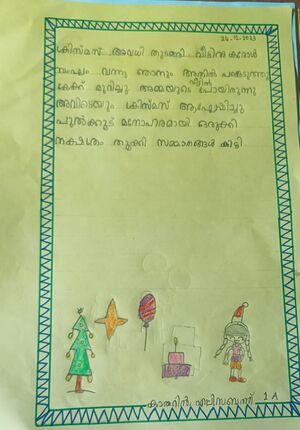 26-12-2023
ക്രിസ്മസ് അവധി തുടങ്ങി വീട്ടിൽ കരോൾ
സംഘം വന്നു ഞാനും അതിൽ പങ്കെടുത്തു
വീട്ടിൽ
കേക്ക് മുറിച്ചു അമ്മയുടെ പോയിരുന്നു
അവിടെയും ക്രിസ്മസ് ആഘോഷിച്ചു
പുൽക്കൂട് മനോഹരമായി ഒരുക്കി
നക്ഷത്രം തൂക്കി സമ്മാനങ്ങൾ കിട്ടി
കാതറിൻ എലിസബത്ത് 1 A